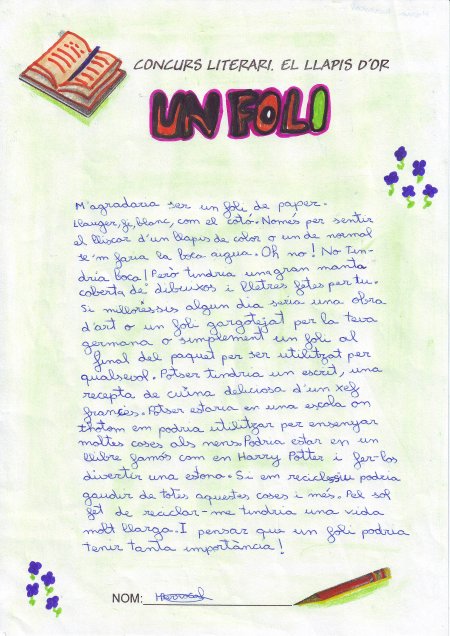 CONCURS LITERARI. EL LLAPIS D'OR
UN FOLI
M'agradaria ser un foli de paper.
Llauger, fi, blanc, com el cotó. Només per sentir
el lliscar d'un llapis de color o un de normal
se'm faria la boca aigua. Oh no! No tin-
dria boca! Però tindria una gran manta
coberta de dibuixos i lletres fetes per tu.
Si millores sis algun dia seria una obra
d'art o un foli gargotejat per la teva
germana o simplement un foli al
final del paquet per ser utilitzat per
qualsevol. Potser tindria un escrit, una
recepta de cuina deliciosa d'un xef
francès. Potser estaria en una escola on
tothom em podria utilitzar per ensenyar
moltes coses als nens. Podria estar en un
llibre famós com en Harry Potter i fer-los
divertir una estona. Si em reciclessiu podria
gaudir de totes aquestes coses i més. Pel sol
fet de reciclar-me tindria una vida
molt llarga. I pensar que un foli podria
tenir tanta importància!
NOM: